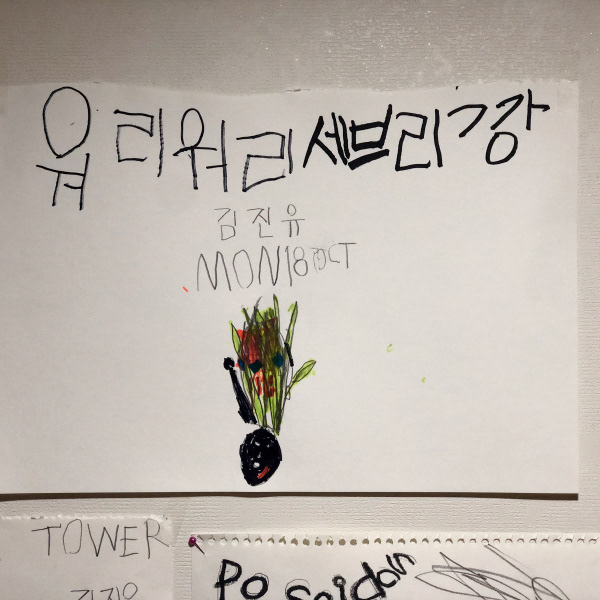 워리워리세브리깅
김진유
MON 18 OCT
TOWER
김진유
Poseidon